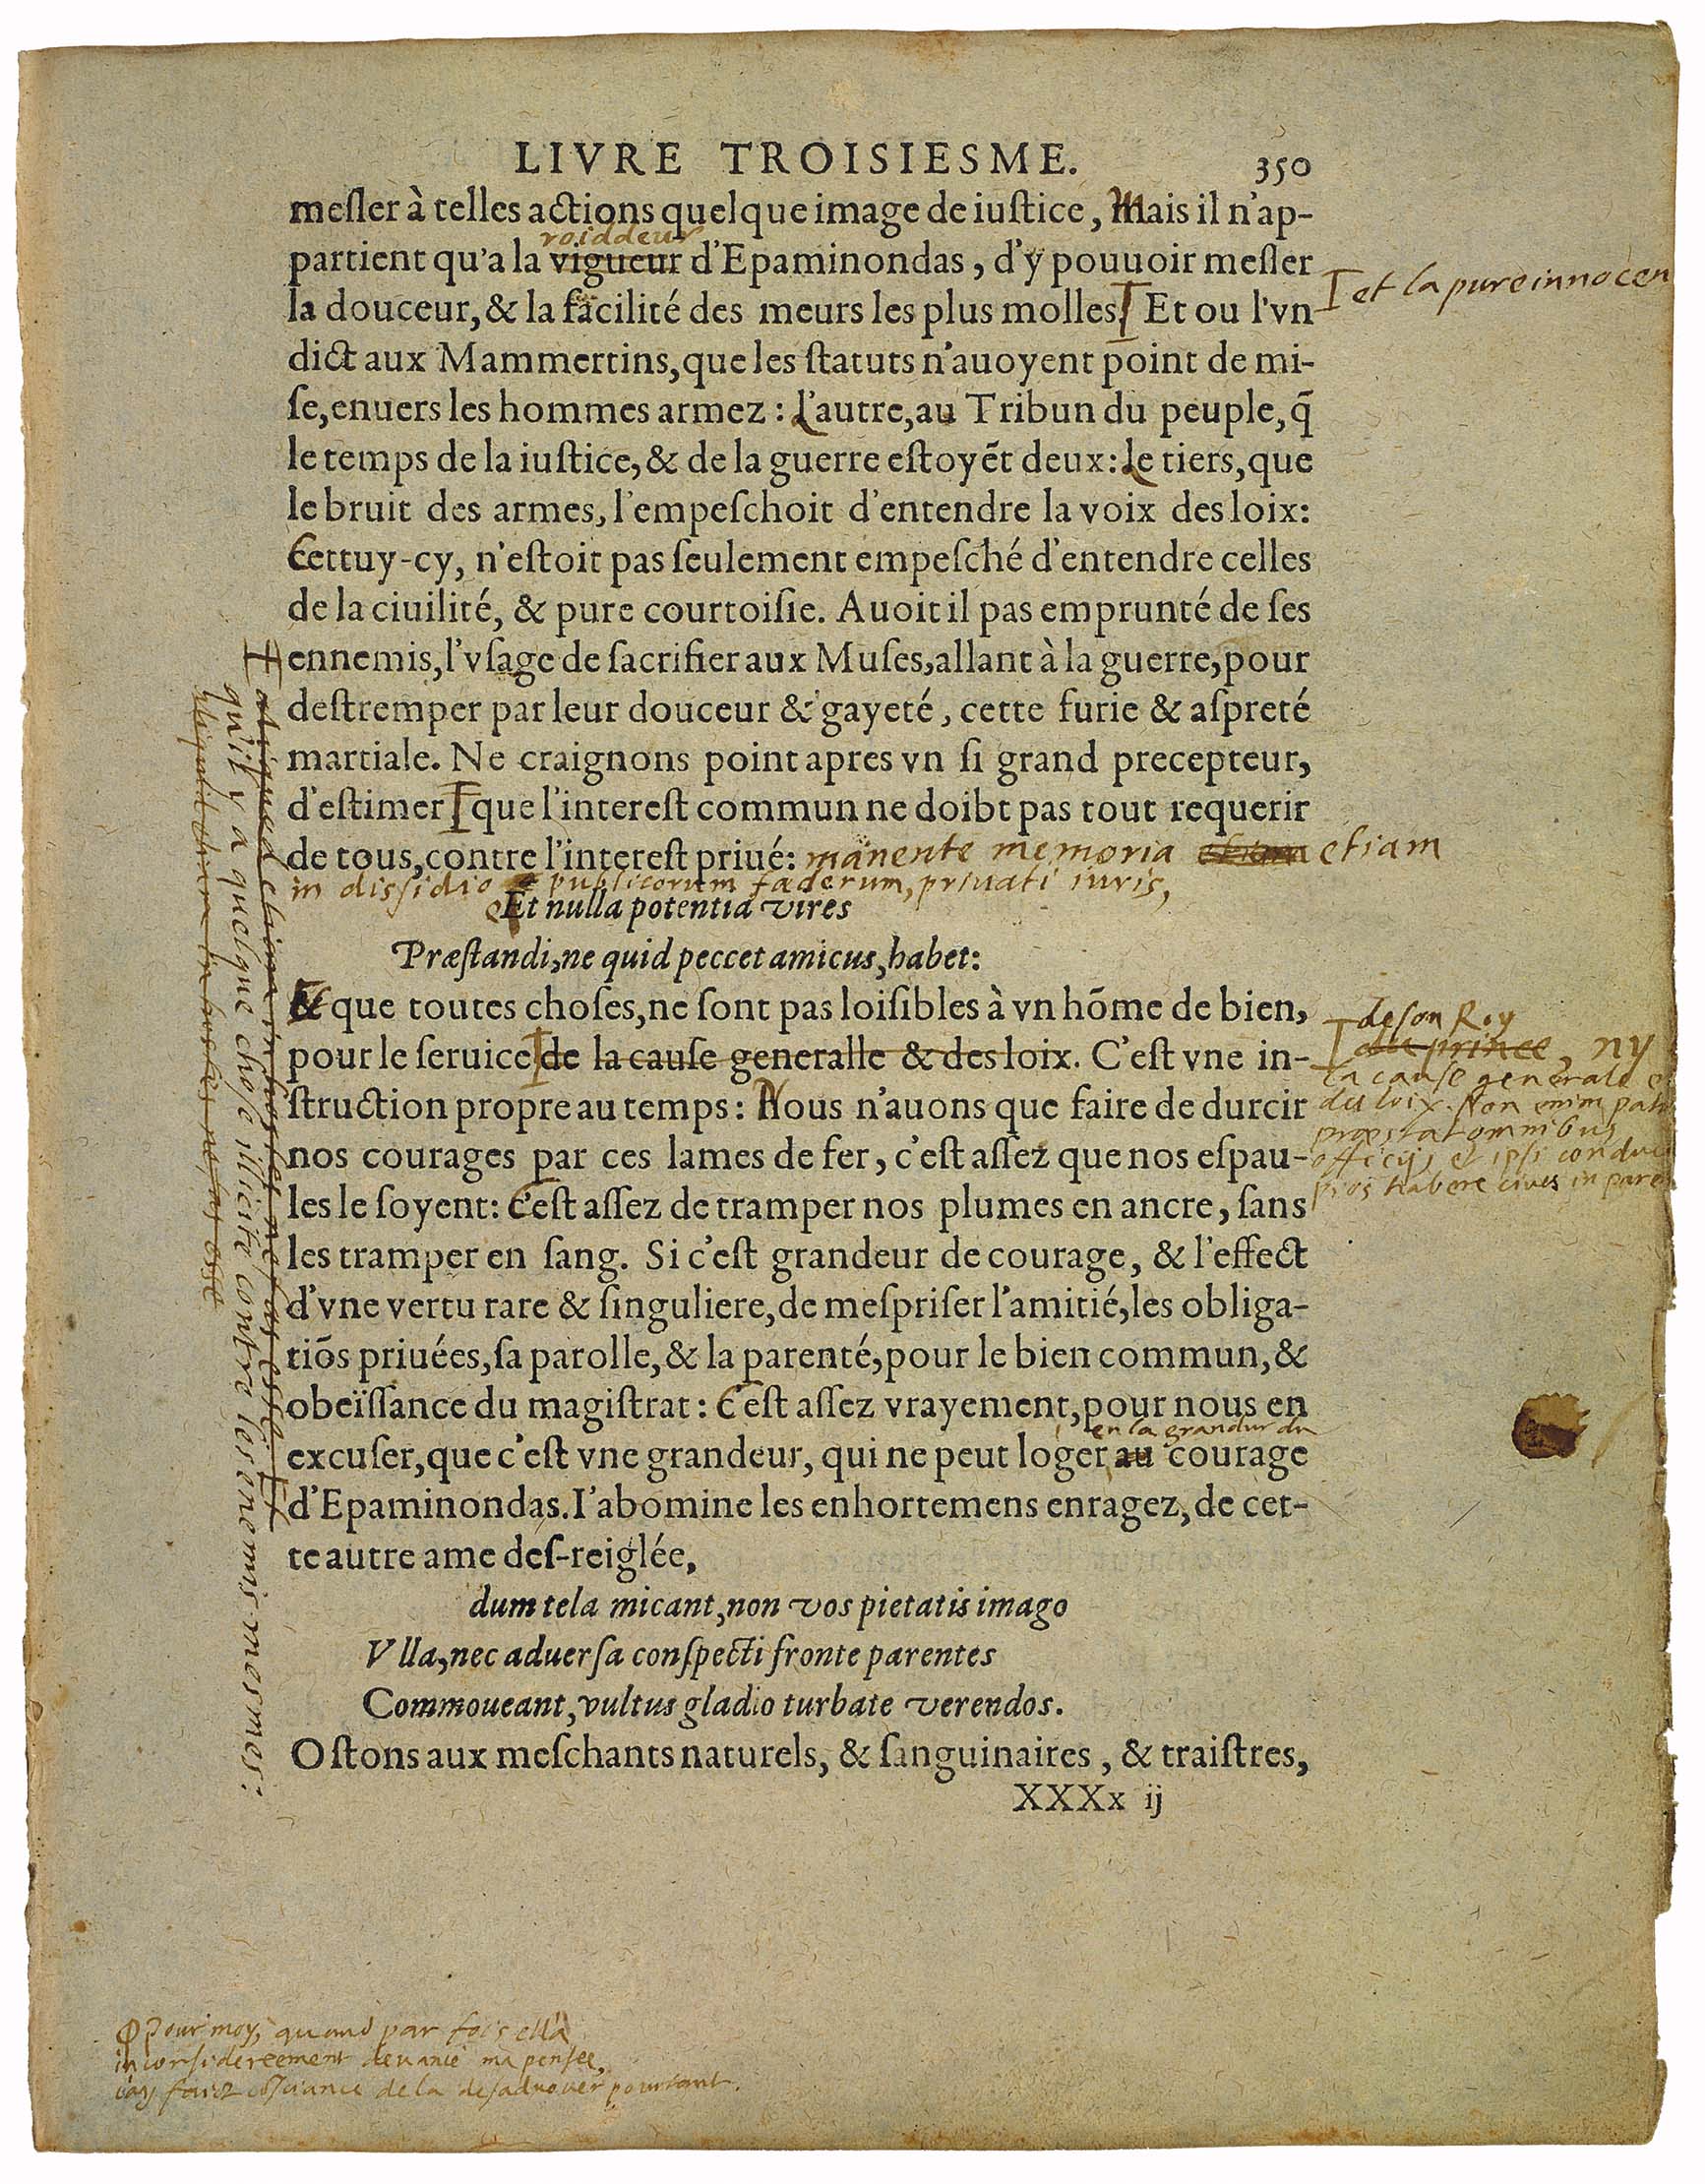 LIVRE TROISIESME. 350
meſler à telles actions quelque image de iuſtice, Mais il n'ap-
roiddeur
partient qu'a la vigueur d'Epaminondas, d'y pouuoir meſler
et la pure innocen
la douceur, & la facilité des meurs les plus molles. Et ou l'vn
dict aux Mammertins, que les ſtatuts n'auoyent point de mi-
ſe, enuers les hommes armez : L'autre, au Tribun du peuple, q̃
le temps de la iuſtice, & de la guerre eſtoyẽt deux: Le tiers, que
le bruit des armes, l'empeſchoit d'entendre la voix des loix:
Cettuy-cy, n'eſtoit pas ſeulement empeſché d'entendre celles
de la ciuilité, & pure courtoiſie. Auoit il pas emprunté de ſes
ennemis, l'vſage de ſacrifier aux Muſes, allant à la guerre, pour
deſtremper par leur douceur & gayeté, cette furie & aſpreté
martiale. Ne craignons point apres vn ſi grand precepteur,
d'eſtimer que l'intereſt commun ne doibt pas tout requerir
de tous, contre l'intereſt priué: manente memoria etiam
in dissidio publicorum fœderum, priuati iuris,
Et nulla potentia vires
Præſtandi, ne quid peccet amicus, habet:
& que toutes choſes, ne ſont pas loiſibles à vn hõme de bien,
pour le ſeruice de la cauſe generalle & des loix. C'eſt vne in-
ſtruction propre au temps: Nous n'auons que faire de durcir
nos courages par ces lames de fer, c'eſt aſſez que nos eſpau-
les le ſoyent: C'eſt aſſez de tramper nos plumes en ancre, ſans
les tramper en ſang. Si c'eſt grandeur de courage, & l'effect
d'vne vertu rare & ſinguliere, de meſpriſer l'amitié, les obliga-
tiõs priuées, ſa parolle, & la parenté, pour le bien commun, &
obeïſſance du magiſtrat : C'eſt aſſez vrayement, pour nous en
en la grandur du
excuſer, que c'eſt vne grandeur, qui ne peut loger au courage
d'Epaminondas. I'abomine les enhortemens enragez, de cet-
te autre ame deſ-reiglée,
dum tela micant, non vos pietatis imago
Vlla, nec aduerſa conſpecti fronte parentes
Commoueant, vultus gladio turbate verendos.
Oſtons aux meſchants naturels, & ſanguinaires, & traiſtres,
XXXx ij
de son Roy
du prince, ny
la cause generale e
des loix. Non enim patr
præstat omnibus
officijs et ipsi conduc
pios habere ciues in paren
aliquid etiam in hostes nefas esse. Et
qu'il y a quelque chose illicite contre les enemis mesmes:
aliquid etiam in hostes nefas esse
Pour moy, quand par fois ell'a
inconsidereement deuancé ma pensee,
i'ay faict cõsciance de la desaduouer pourtant.